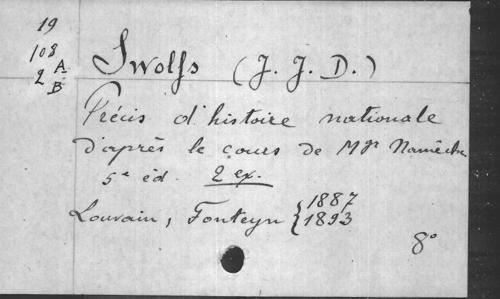 19
108
2 A
B
Swolfs (J. J. D.)
Précis d'histoire nationale
d'après le cours de Mgr Namèche
5e éd. 2 ex.
Louvain, Fonteyn { 1887
1893
8°